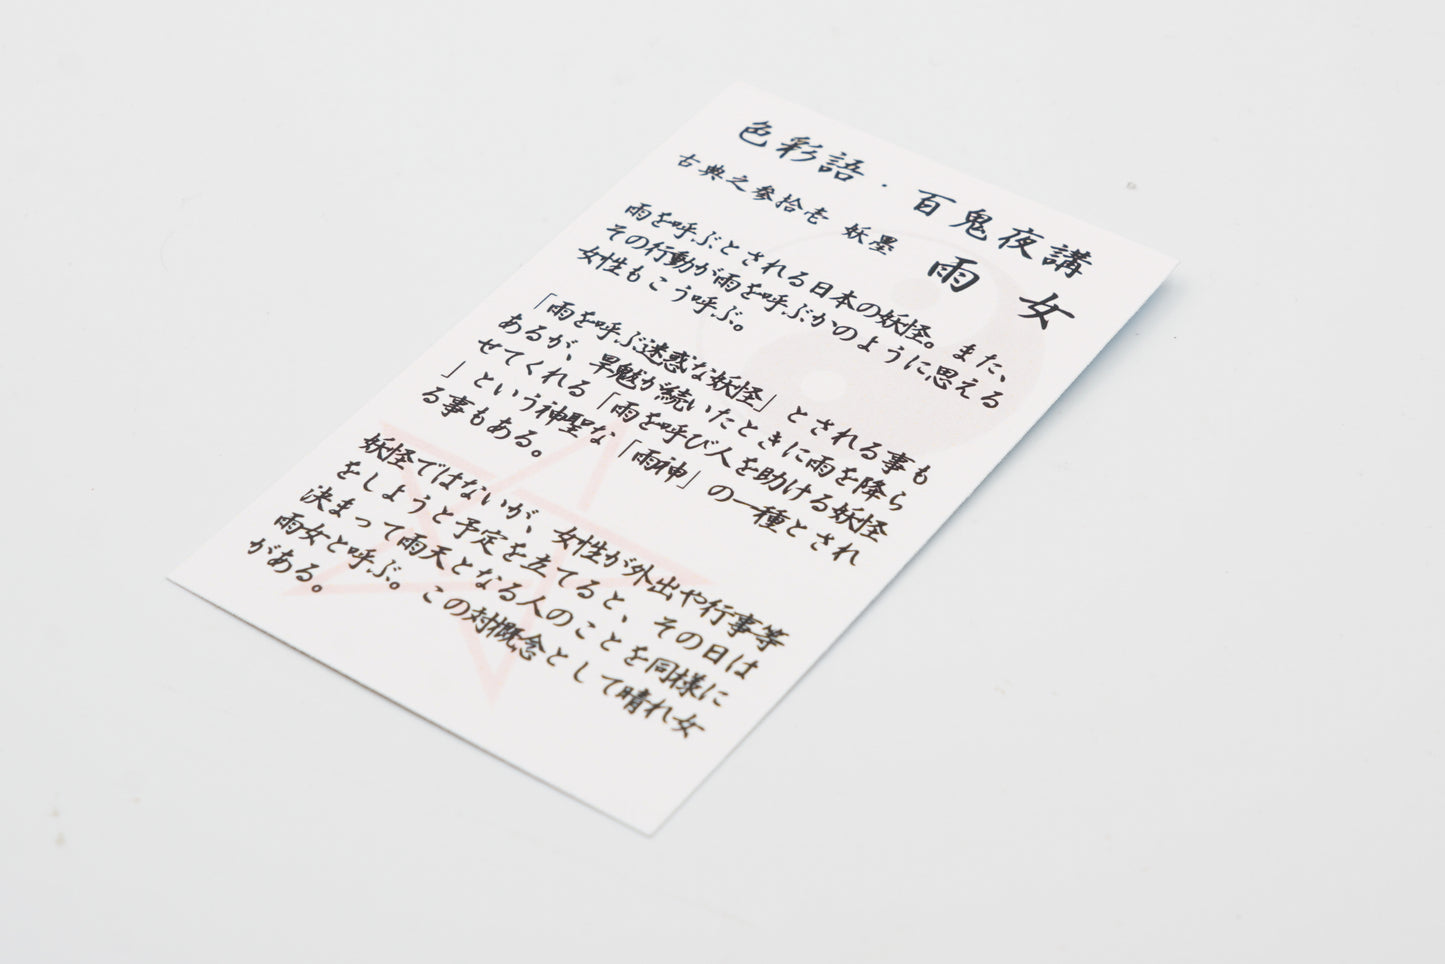 色彩語・百鬼夜講
古典之参拾壱 妖墨 雨女
雨を呼ぶとされる日本の妖怪。また、
その行動が雨を呼ぶかのように思える
女性もこう呼ぶ。
「雨を呼ぶ迷惑な妖怪」とされる事も
あるが、旱魃が続いたときに雨を降ら
せてくれる「雨を呼び人を助ける妖怪
」という神聖な「雨神」の一種とされ
る事もある。
妖怪ではないが、女性が外出や行事等
をしようと予定を立てると、その日は
決まって雨天となる人のことを同様に
雨女と呼ぶ。この対概念として晴れ女
がある。